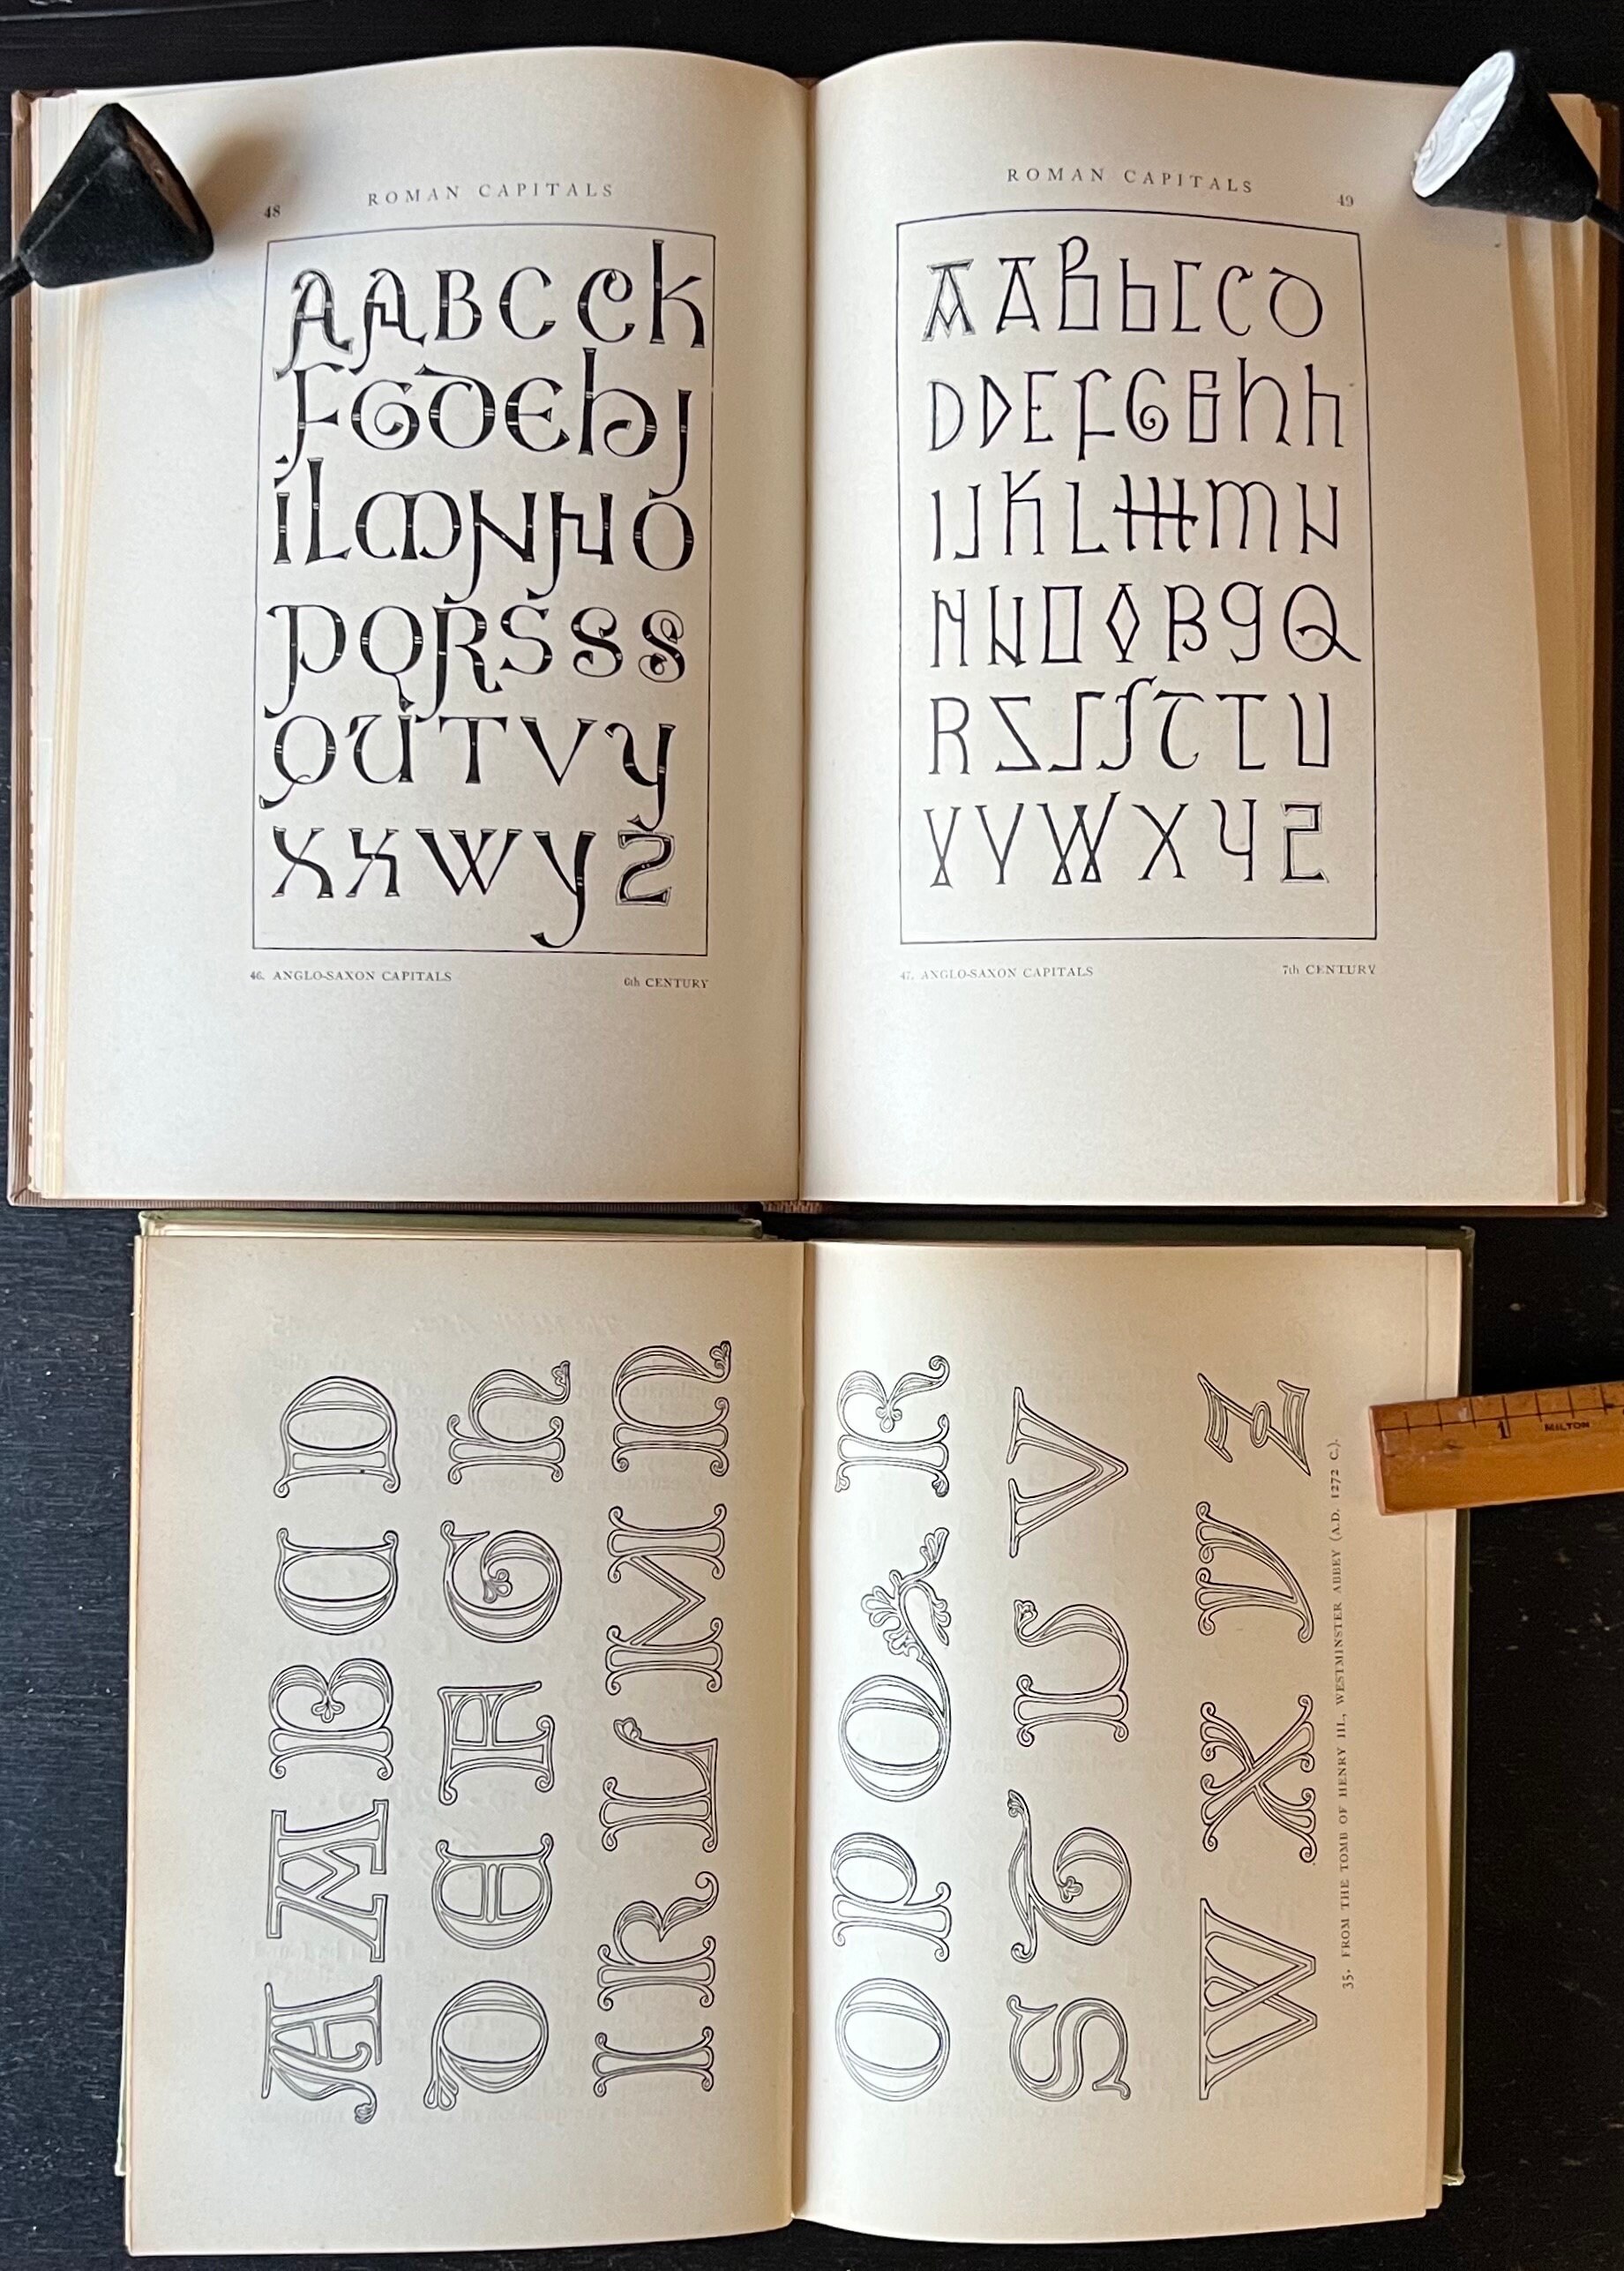 48
ROMAN CAPITALS
A A B C C K
F G D E h J
I L M N N O
P Q R S S S
Q U T V Y
X X W Y Z
46. ANGLO-SAXON CAPITALS
6th CENTURY
ROMAN CAPITALS
49
A A B b C C D
D D E F G B h h
I J K L M m N
N N O O B 9 Q
R S S S T T U
V Y W X Y Z
47. ANGLO-SAXON CAPITALS
7th CENTURY
A A B C D
D E F G H
I K L M N
O P Q R
S T U V
W X Y Z
35. FROM THE TOMB OF HENRY III., WESTMINSTER ABBEY (A.D. 1272 C.).
1
MILTON